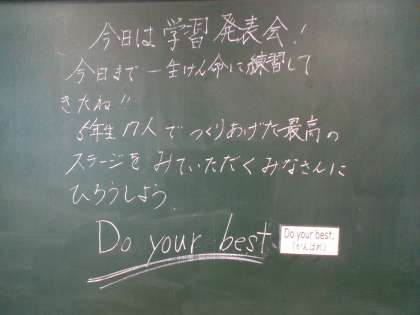 今日は学習発表会!
今日まで一生けん命に練習して
きたね!!
5年生17人でつくりあげた最高の
ステージをみていただくみなさんに
ひろうしよう。
Do your best.
Do your best.
(がんばれ)